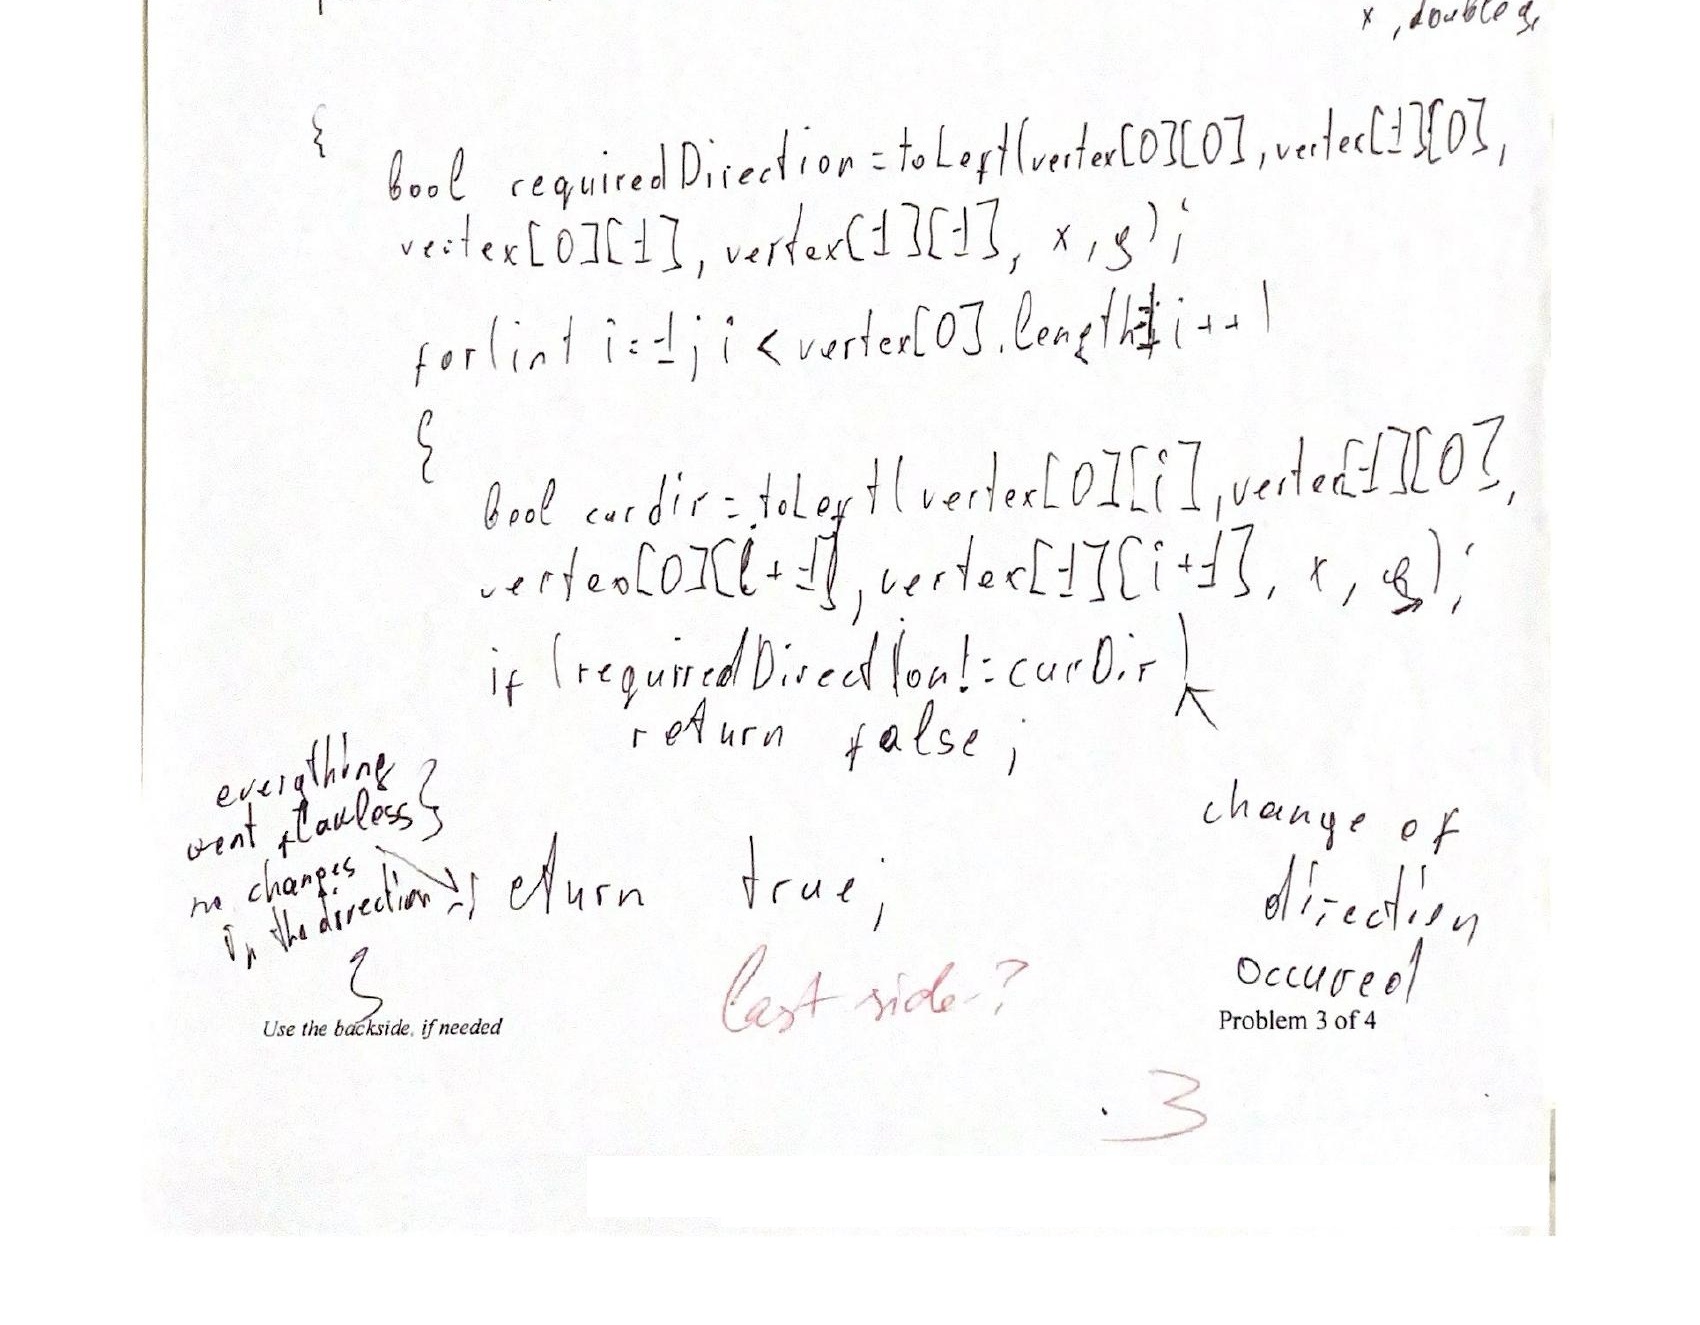 x, double y,
{
bool requiredDirection = toLeft(vertex[0][0], vertex[1][0],
vertex[0][1], vertex[1][1], x, y);
for(int i=1; i < vertex[0].length-1; i++)
{
bool curdir = toLeft(vertex[0][i], vertex[1][0],
vertex[0][i+1], vertex[1][i+1], x, y);
if (requiredDirection != curDir)
return false;
everything
went flawless }
no changes
in the direction
return true;
}
change of
direction
occured
last side?
Use the backside, if needed
Problem 3 of 4
3